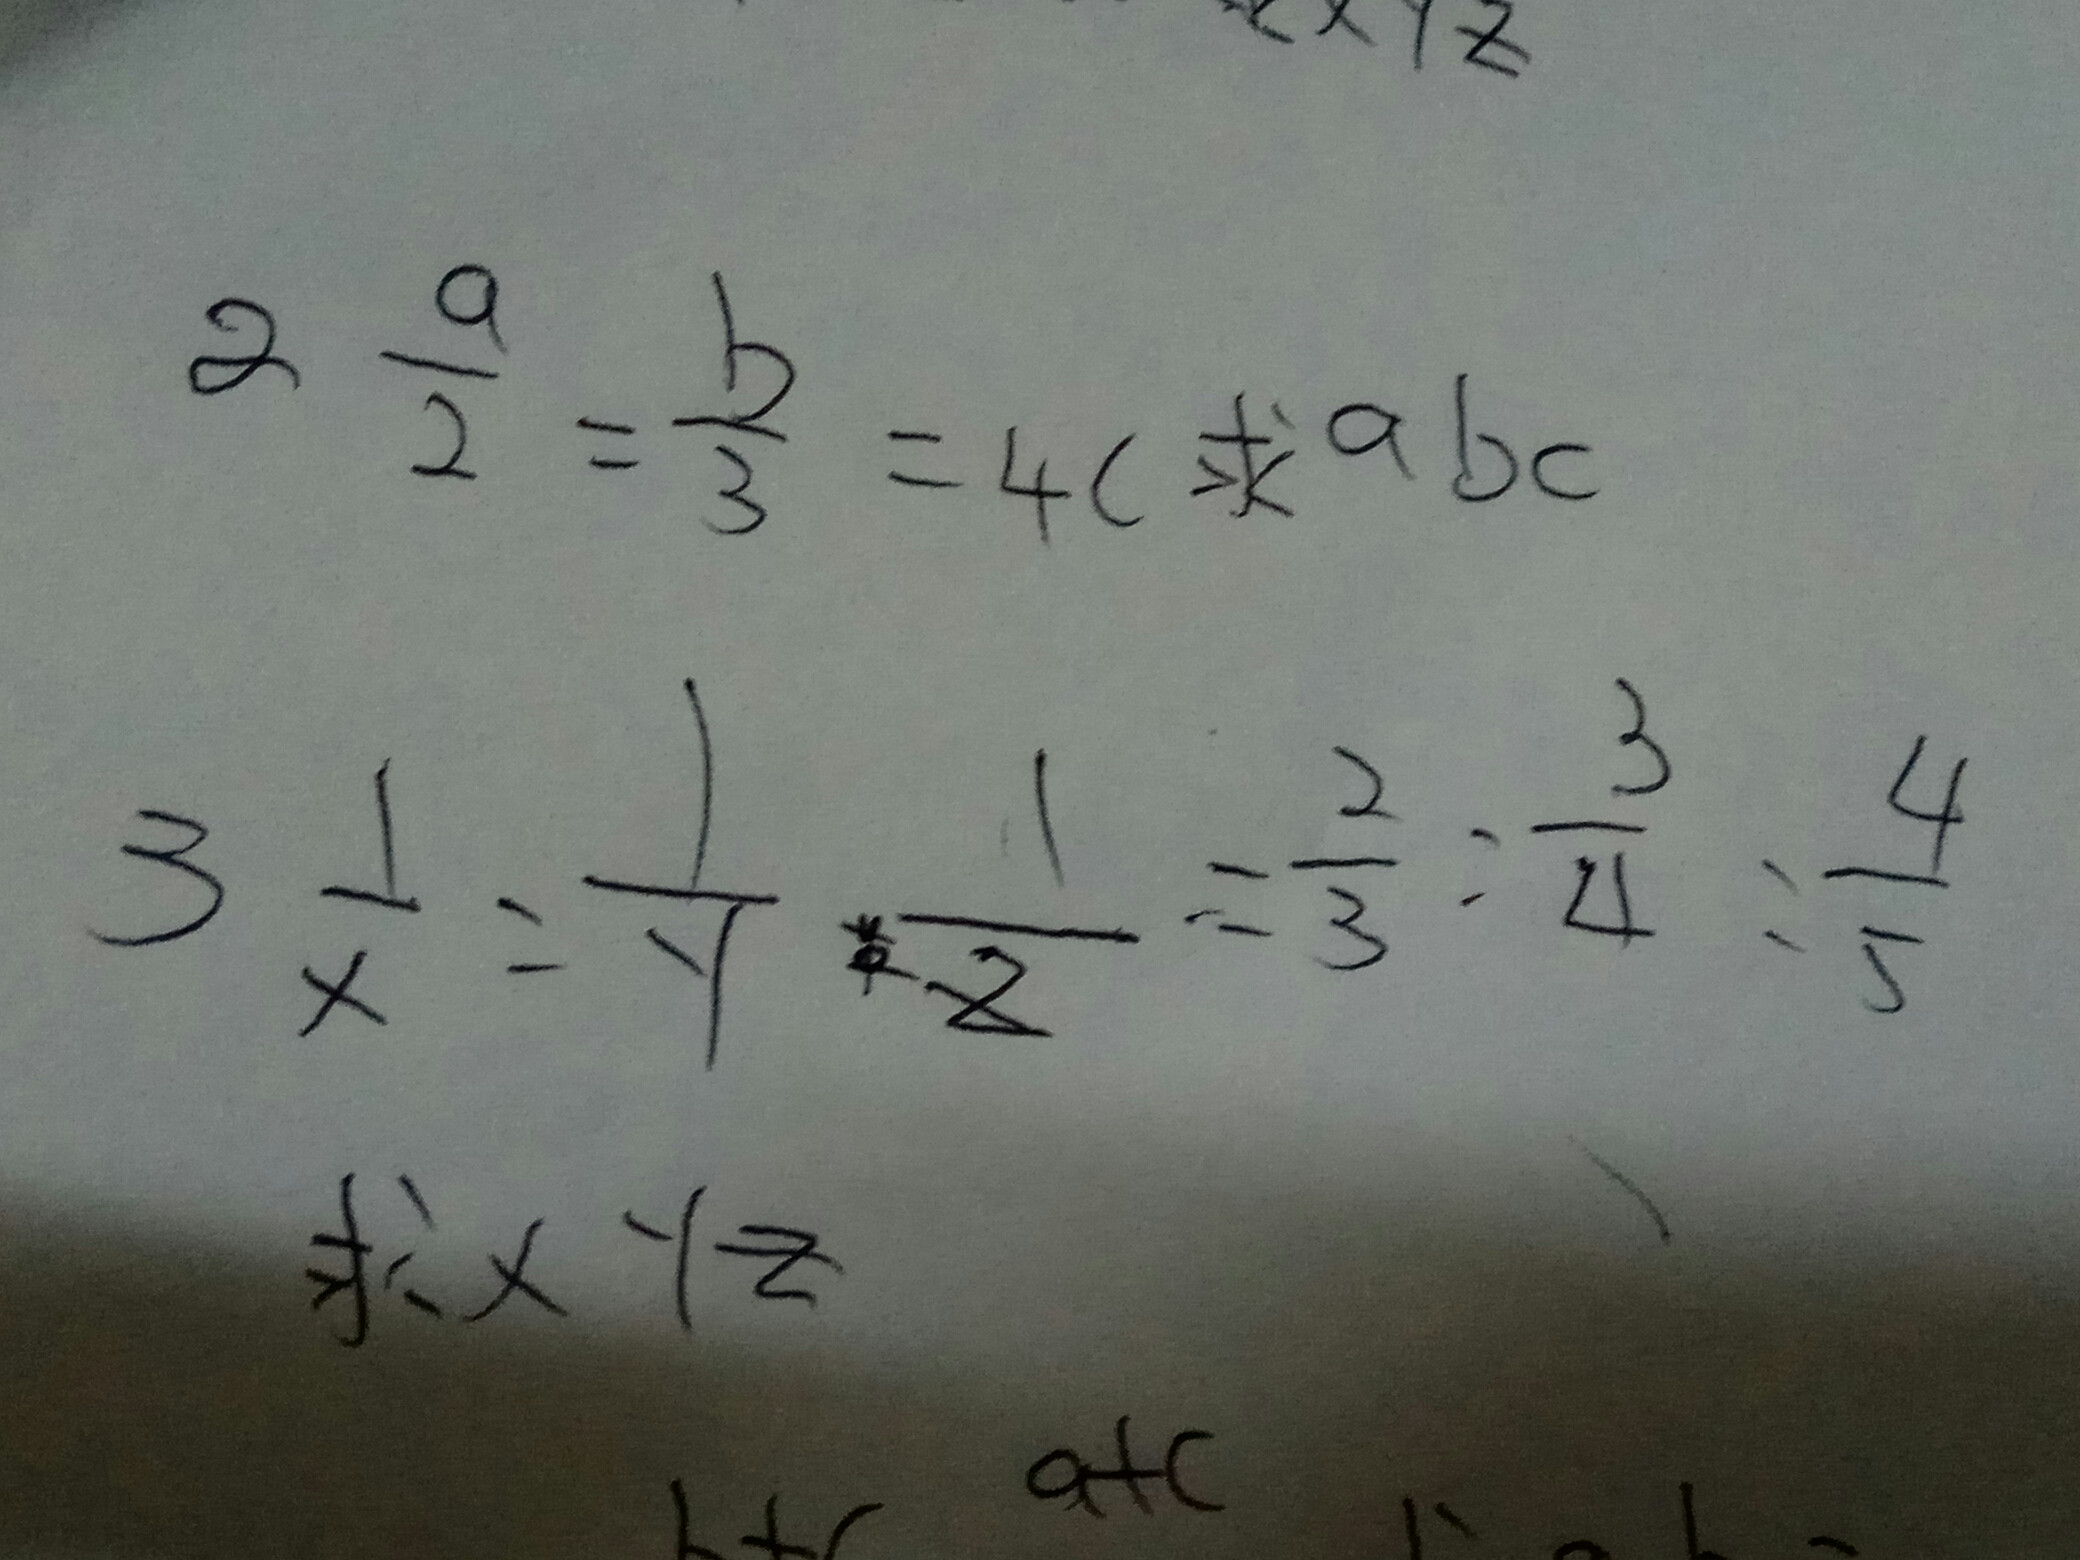 xYz
2 a/2 = b/3 = 4c 求abc
3 1/x : 1/Y : 1/z = 2/3 : 3/4 : 4/5
求xYz
b+c a+c